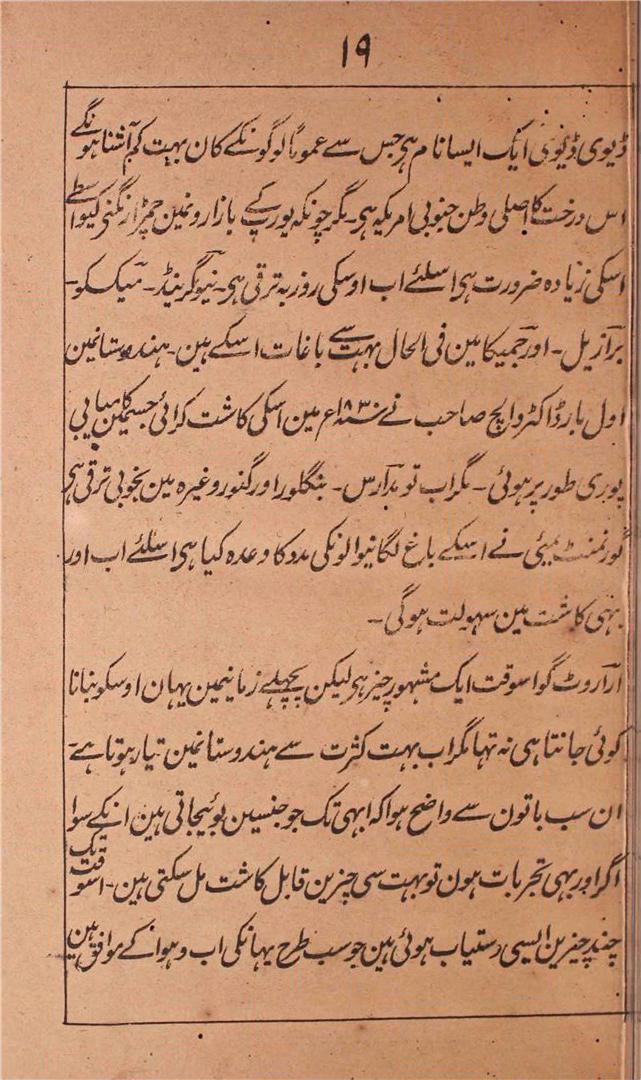 ۱۹
ڈیوی ڈیوی ایک ایسا نام ہی جس سے عموماً لوگونکے کان بہت کم آشنا ہونگے
اس درخت کا اصلی وطن جنوبی امریکہ ہی۔ مگر چونکہ یورپ کے بازارونمین چمڑا رنگنی کیواسطے
اسکی زیادہ ضرورت ہی اسلئے اب اوسکی روز بہ ترقی ہی۔ نیوگرینیڈ۔ میکسکو۔
برازیل۔ اور جمیکا مین فی الحال بہت سے باغات اسکے ہین۔ ہندوستانمین
اول بار ڈاکٹر والچ صاحب نے ۱۸۳۰ سنہ ع مین اسکی کاشت کرائی جسمین کامیابی
پوری طور پر ہوئی۔ مگر اب تو مدارس۔ بنگلور اور گنور وغیرہ مین بخوبی ترقی ہی
گورنمنٹ بمبئی نے اسکے باغ لگانیوالونکی مدد کا وعدہ کیا ہی اسلئے اب اور
بہی کاشت مین سہولت ہوگی۔
اراروٹ گو اسوقت ایک مشہور چیز ہی لیکن پچہلے زمانیمین یہان اوسکو بنانا
کوئی جانتا ہی نہ تہا مگر اب بہت کثرت سے ہندوستانمین تیار ہوتا ہے۔
ان سب باتون سے واضح ہوا کہ ابہی تک جو جنسین بوئیجاتی ہین انکے سوا
اگر اور بہی تجربات ہون تو بہت سی چیزین قابل کاشت مل سکتی ہین۔ اسوقت تک
چند چیزین ایسی دستیاب ہوئی ہین جو سب طرح یہانکی اب و ہوا کے موافق ہین